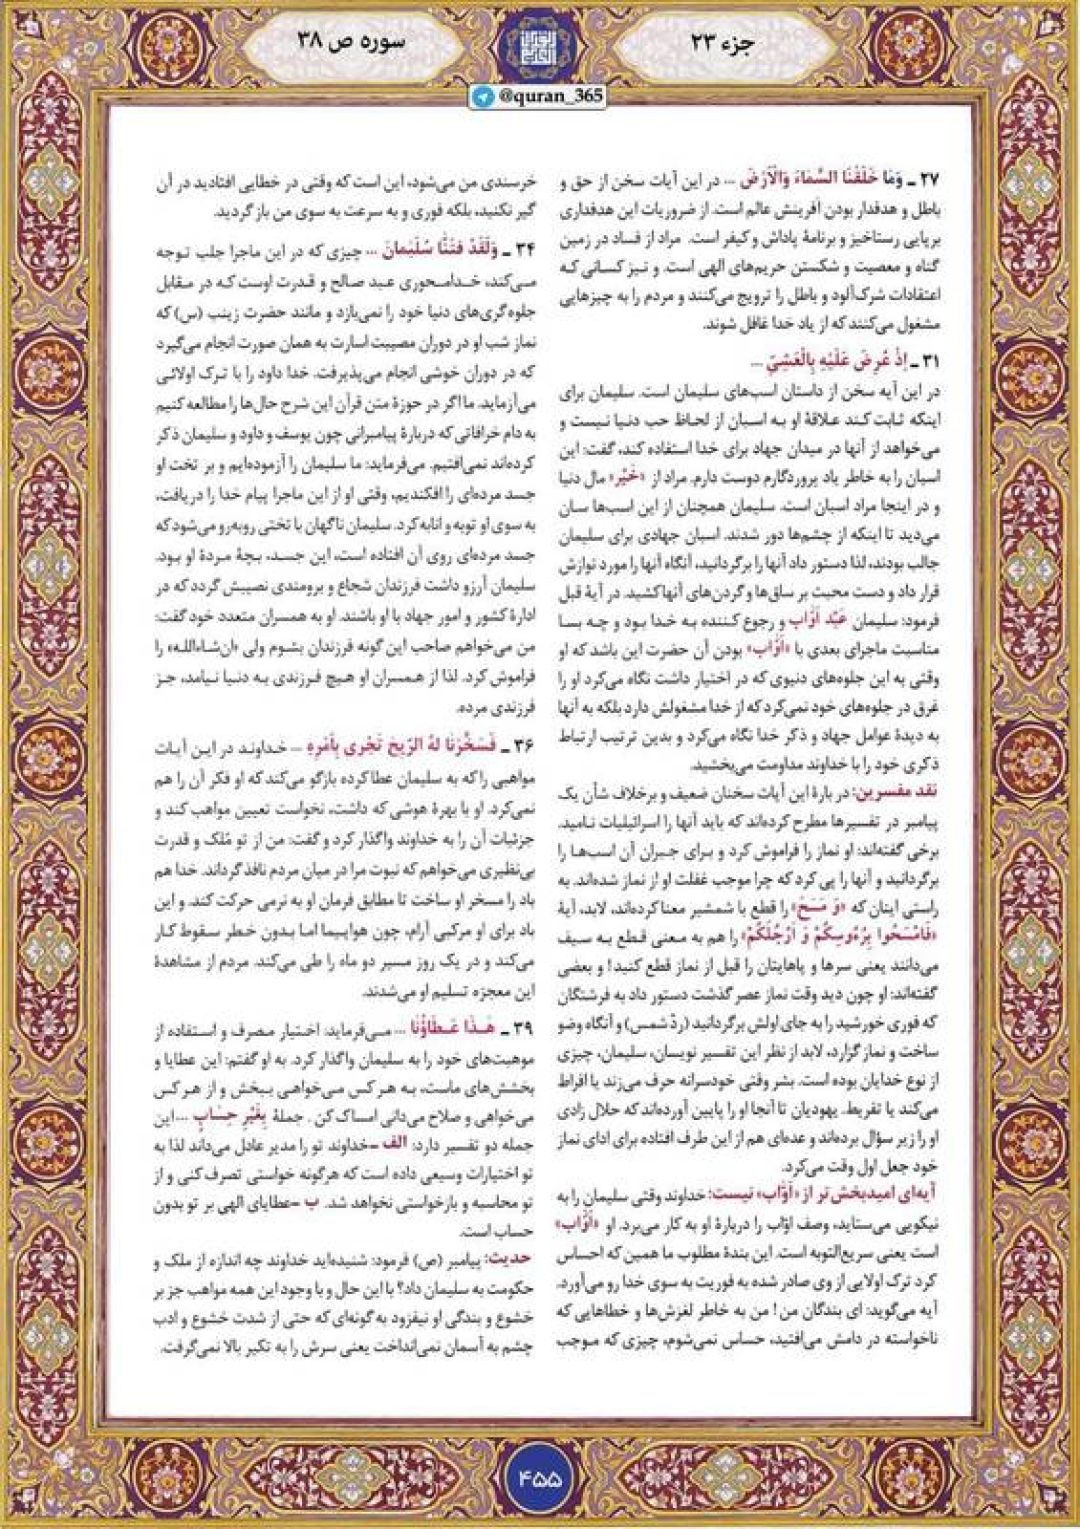 جزء ۲۳
سوره ص ۳۸
@quran_365
۲۷ ـ وَمَا خَلَقْنَا السَّمَاءَ وَالْأَرْضَ ... در این آیات سخن از حق و
باطل و هدفدار بودن آفرینش عالم است. از ضروریات این هدفداری
برپایی رستاخیز و برنامهٔ پاداش و کیفر است. مراد از فساد در زمین
گناه و معصیت و شکستن حریم‌های الهی است. و نیز کسانی که
اعتقادات شرک‌آلود و باطل را ترویج می‌کنند و مردم را به چیزهایی
مشغول می‌کنند که از یاد خدا غافل شوند.
۳۱ ـ إِذْ عُرِضَ عَلَيْهِ بِالْعَشِيِّ ...
در این آیه سخن از داستان اسب‌های سلیمان است. سلیمان برای
اینکه ثابت کند علاقهٔ او به اسبان از لحاظ حب دنیا نیست و
می‌خواهد از آنها در میدان جهاد برای خدا استفاده کند، گفت: این
اسبان را به خاطر یاد پروردگارم دوست دارم. مراد از «خَیْر» مال دنیا
و در اینجا مراد اسبان است. سلیمان همچنان از این اسب‌ها سان
می‌دید تا اینکه از چشم‌ها دور شدند. اسبان جهادی برای سلیمان
جالب بودند، لذا دستور داد آنها را برگردانید، آنگاه آنها را مورد نوازش
قرار داد و دست محبت بر ساق‌ها و گردن‌های آنها کشید. در آیهٔ قبل
فرمود: سلیمان عَبْد أَوَّاب و رجوع کننده به خدا بود و چه بسا
مناسبت ماجرای بعدی با «أَوَّاب» بودن آن حضرت این باشد که او
وقتی به این جلوه‌های دنیوی که در اختیار داشت نگاه می‌کرد او را
غرق در جلوه‌های خود نمی‌کرد که از خدا مشغولش دارد بلکه به آنها
به دیدهٔ عوامل جهاد و ذکر خدا نگاه می‌کرد و بدین ترتیب ارتباط
ذکری خود را با خداوند مداومت می‌بخشید.
نقد مفسرین: دربارهٔ این آیات سخنان ضعیف و برخلاف شأن یک
پیامبر در تفسیرها مطرح کرده‌اند که باید آنها را اسرائیلیات نامید.
برخی گفته‌اند: او نماز را فراموش کرد و برای جبران آن اسب‌ها را
برگردانید و آنها را پی کرد که چرا موجب غفلت او از نماز شده‌اند. به
راستی اینان که «وَ مَسَحَ» را قطع با شمشیر معنا کرده‌اند، لابد، آیهٔ
«فَامْسَحُوا بِرُءُوسِکُمْ وَ أَرْجُلَکُمْ» را هم به معنی قطع به سیف
می‌دانند یعنی سرها و پاهایتان را قبل از نماز قطع کنید! و بعضی
گفته‌اند: او چون دید وقت نماز عصر گذشت دستور داد به فرشتگان
که فوری خورشید را به جای اولش برگردانید (ردّ شمس) و آنگاه وضو
ساخت و نماز گزارد، لابد از نظر این تفسیر نویسان، سلیمان، چیزی
از نوع خدایان بوده است. بشر وقتی خودسرانه حرف می‌زند یا افراط
می‌کند یا تفریط. یهودیان تا آنجا او را پایین آورده‌اند که حلال زادی
او را زیر سؤال برده‌اند و عده‌ای هم از این طرف افتاده برای ادای نماز
خود جعل اول وقت می‌کرد.
آیه‌ای امیدبخش‌تر از «أَوَّاب» نیست: خداوند وقتی سلیمان را به
نیکویی می‌ستاید، وصف اوّاب را دربارهٔ او به کار می‌برد. او «أَوَّاب»
است یعنی سریع‌التوبه است. این بندهٔ مطلوب ما همین که احساس
کرد ترک اولایی از وی صادر شده به فوریت به سوی خدا رو می‌آورد.
آیه می‌گوید: ای بندگان من! من به خاطر لغزش‌ها و خطاهایی که
ناخواسته در دامش می‌افتید، حساس نمی‌شوم، چیزی که موجب
خرسندی من می‌شود، این است که وقتی در خطایی افتادید در آن
گیر نکنید، بلکه فوری و به سرعت به سوی من باز گردید.
۳۴ ـ وَلَقَدْ فَتَنَّا سُلَیْمَانَ ... چیزی که در این ماجرا جلب توجه
می‌کند، خدامحوری عبد صالح و قدرت اوست که در مقابل
جلوه‌گری‌های دنیا خود را نمی‌بازد و مانند حضرت زینب (س) که
نماز شب او در دوران مصیبت اسارت به همان صورت انجام می‌گیرد
که در دوران خوشی انجام می‌پذیرفت. خدا داود را با ترک اولائی
می‌آزماید. ما اگر در حوزهٔ متن قرآن این شرح حال‌ها را مطالعه کنیم
به دام خرافاتی که دربارهٔ پیامبرانی چون یوسف و داود و سلیمان ذکر
کرده‌اند نمی‌افتیم. می‌فرماید: ما سلیمان را آزموده‌ایم و بر تخت او
جسد مرده‌ای را افکندیم، وقتی او از این ماجرا پیام خدا را دریافت،
به سوی او توبه و انابه کرد. سلیمان ناگهان با تختی روبه‌رو می‌شود که
جسد مرده‌ای روی آن افتاده است، این جسد، بچهٔ مردهٔ او بود.
سلیمان آرزو داشت فرزندان شجاع و برومندی نصیبش گردد که در
ادارهٔ کشور و امور جهاد با او باشند. او به همسران متعدد خود گفت:
من می‌خواهم صاحب این گونه فرزندان بشوم ولی «ان‌شاءالله» را
فراموش کرد. لذا از همسران او هیچ فرزندی به دنیا نیامد، جز
فرزندی مرده.
۳۶ ـ فَسَخَّرْنَا لَهُ الرِّیحَ تَجْرِی بِأَمْرِهِ ... خداوند در این آیات
مواهبی را که به سلیمان عطا کرده بازگو می‌کند که او فکر آن را هم
نمی‌کرد. او با بهرهٔ هوشی که داشت، نخواست تعیین مواهب کند و
جزئیات آن را به خداوند واگذار کرد و گفت: من از تو مُلک و قدرت
بی‌نظیری می‌خواهم که نبوت مرا در میان مردم نافذ گرداند. خدا هم
باد را مسخر او ساخت تا مطابق فرمان او به نرمی حرکت کند. و این
باد برای او مرکبی آرام، چون هواپیما اما بدون خطر سقوط کار
می‌کند و در یک روز مسیر دو ماه را طی می‌کند. مردم از مشاهدهٔ
این معجزه تسلیم او می‌شدند.
۳۹ ـ هَذَا عَطَاؤُنَا ... می‌فرماید: اختیار مصرف و استفاده از
موهبت‌های خود را به سلیمان واگذار کرد. به او گفتم: این عطایا و
بخشش‌های ماست، به هر کس می‌خواهی ببخش و از هر کس
می‌خواهی و صلاح می‌دانی امساک کن. جملهٔ بِغَیْرِ حِسَابٍ ... این
جمله دو تفسیر دارد: الف ـ خداوند تو را مدیر عادل می‌داند لذا به
تو اختیارات وسیعی داده است که هرگونه خواستی تصرف کنی و از
تو محاسبه و بازخواستی نخواهد شد. ب ـ عطایای الهی بر تو بدون
حساب است.
حدیث: پیامبر (ص) فرمود: شنیده‌اید خداوند چه اندازه از ملک و
حکومت به سلیمان داد؟ با این حال و با وجود این همه مواهب جز بر
خشوع و بندگی او نیفزود به گونه‌ای که حتی از شدت خشوع و ادب
چشم به آسمان نمی‌انداخت یعنی سرش را به تکبر بالا نمی‌گرفت.
۴۵۵